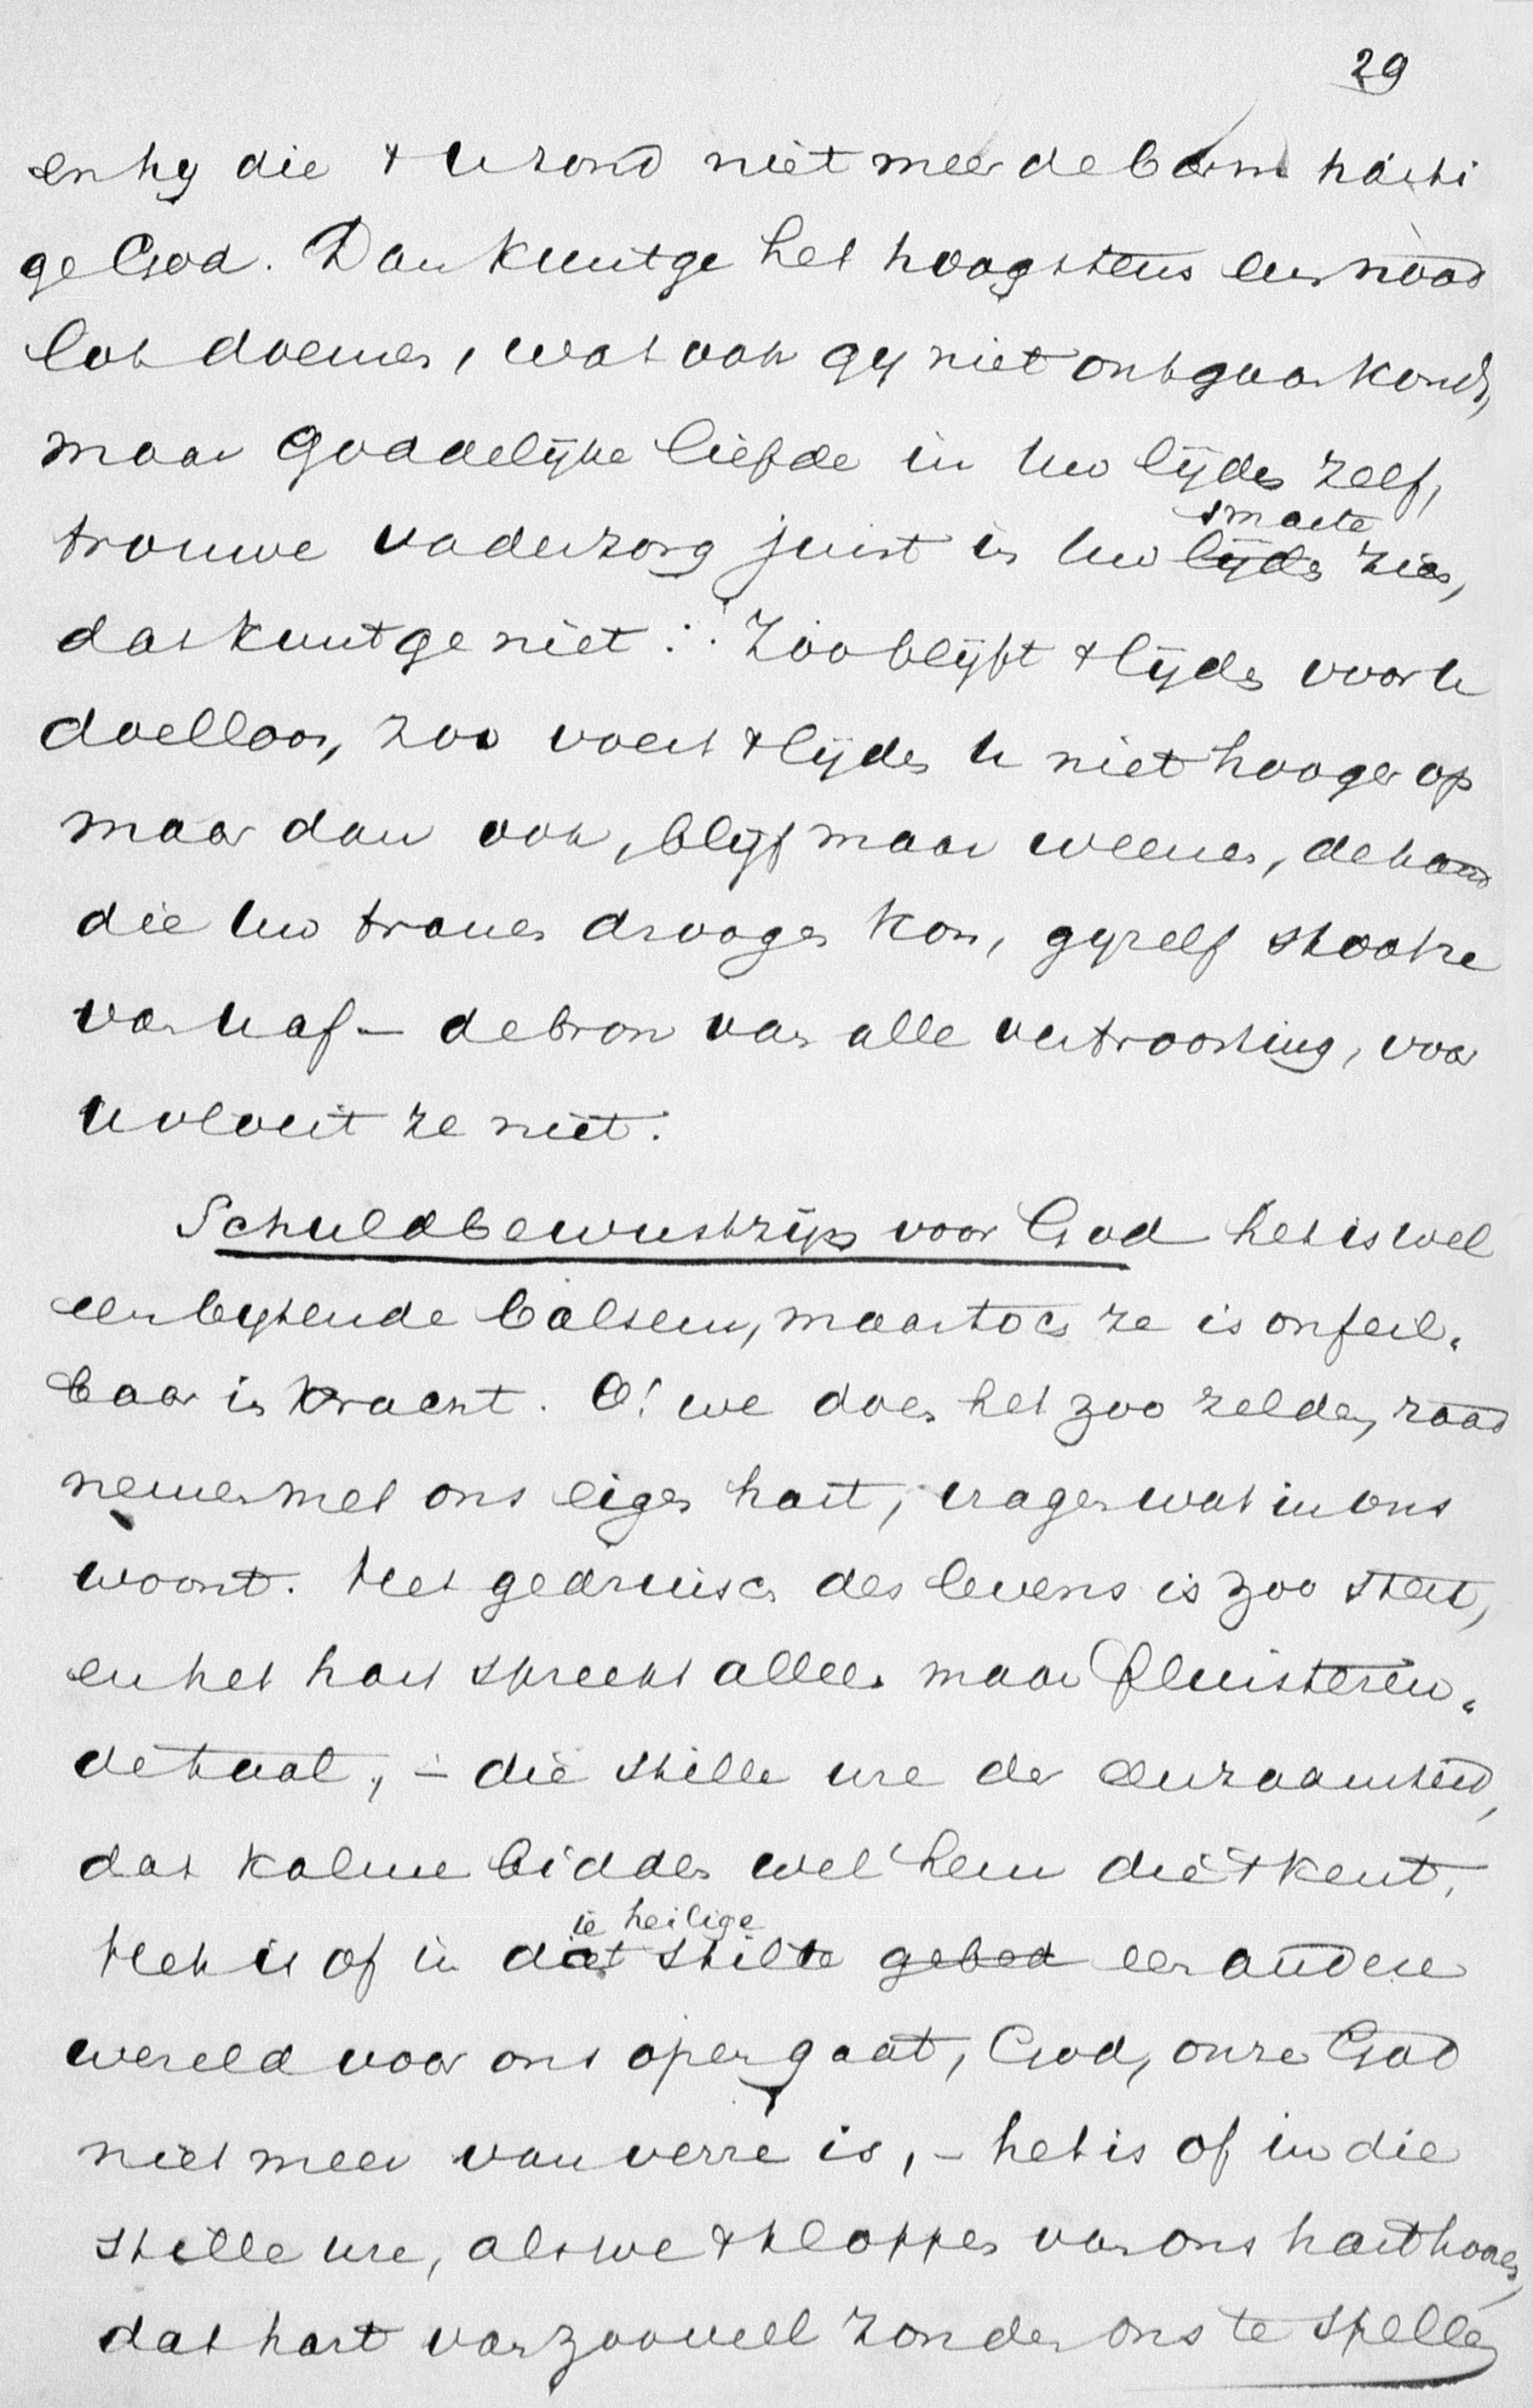 29
en hy die 't U zond niet meer de barmharti
ge God. Dan kunt ge het hoogstens een nood
lot doemen, wat ook gy niet ontgaan kondt,
maar Goddelijke liefde in Uw lijden zelf,
smarte
trouwe vaderzorg juist in Uw lijden zien,
dat kunt ge niet. Zoo blijft 't lijden voor U
doelloos, zoo voert 't lijden U niet hooger op
maar dan ook, blijf maar weenen, de hand
die Uw tranen droogen kon, gyzelf stootze
van U af – de bron van alle vertroosting, voor
U vloeit ze niet.
Schuldbewustzijn voor God het is wel
een bytende balsem, maar toch ze is onfeil„
baar in kracht. O! we doen het zoo zelden, raad
nemen met ons eigen hart, vragen wat in ons
woont. Het gedruisch des levens is zoo sterk,
en het hart spreekt alleen maar fluisteren„
de taal, – die stille ure der eenzaamheid,
dat kalme bidden wel hem die 't kent.
ie heilige
Het is of in dat stilte gebed een andere
wereld voor ons open gaat, God, onze God
niet meer van verre is, – het is of in die
stille ure, als we 't kloppen van ons hart hooren,
dat hart van zooveel zonden ons te spellen